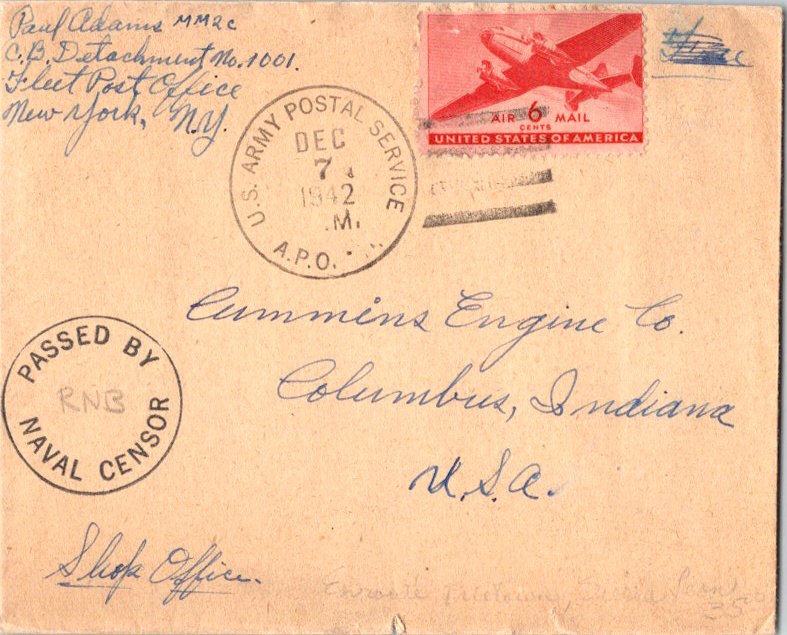 Paul Adams MM2c
C.B. Detachment No. 1001.
Fleet Post Office
New York, N.Y.
U.S. ARMY POSTAL SERVICE
DEC
7
1942
.M.
A.P.O.
AIR 6 MAIL
CENTS
UNITED STATES OF AMERICA
Cummins Engine Co.
Columbus, Indiana
U.S.A.
PASSED BY
RNB
NAVAL CENSOR
Shop Office.
Enroute Freetown,
35